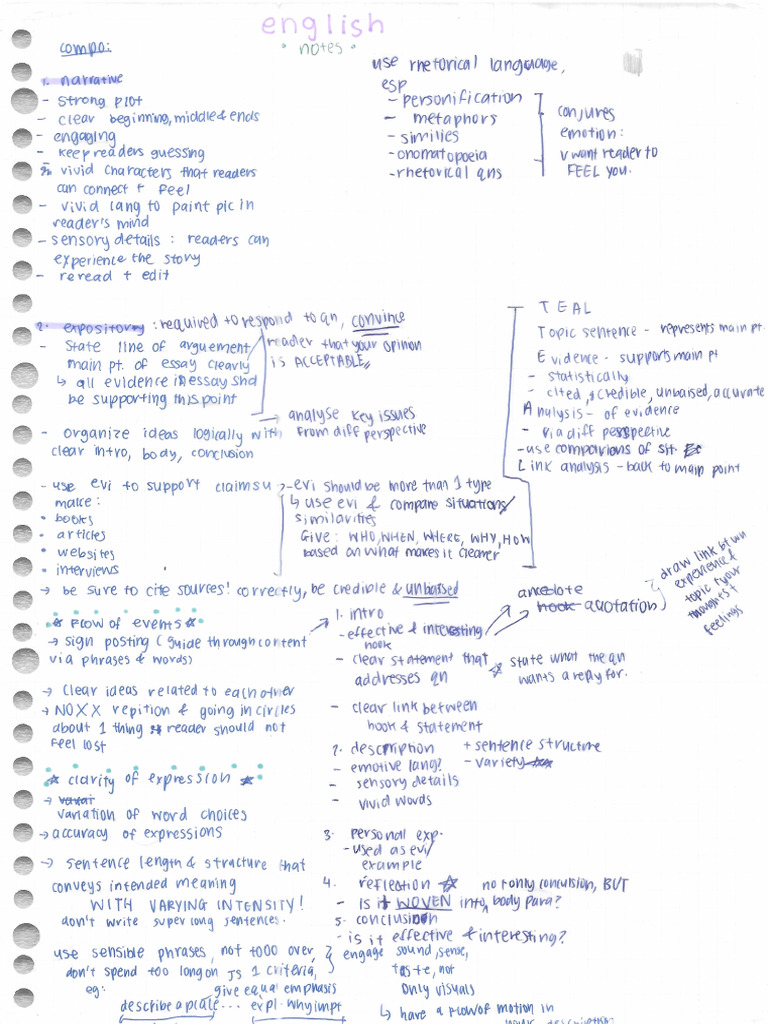 english
• notes •
compo:
1. narrative
- strong plot
- clear beginning, middle & ends
- engaging
- keep readers guessing
vivid characters that readers
can connect + feel
- vivid lang to paint pic in
reader's mind
- sensory details : readers can
experience the story
- reread + edit
use rhetorical language,
esp
- personification
- metaphors
- similies
- onomatopoeia
- rhetorical qns
conjures
emotion:
v want reader to
FEEL YOU.
2. expository : required to respond to qn, convince
reader that your opinion
is ACCEPTABLE
- State line of arguement,
main pt. of essay clearly
↳ all evidence in essay shd
be supporting this point
→ analyse key issues
from diff perspective
- organize ideas logically with
clear intro, body, conclusion
- use evi to support claims u
make:
• books
• articles
• websites
• interviews
- evi should be more than 1 type
↳ use evi & compare situations/
similarities
Give: WHO, WHEN, WHERE, WHY, HOW
based on what makes it clearer
→ be sure to cite sources! correctly, be credible & unbaised
TEAL
Topic sentence - represents main pt.
Evidence - supports main pt
- statistically
- cited, credible, unbaised, accurate
Analysis - of evidence
- via diff perspective
- use comparions of sit
Link analysis - back to main point
☆ Flow of events ☆
→ sign posting (guide through content
via phrases & words)
→ clear ideas related to each other
→ NO XX repition & going in circles
about 1 thing reader should not
feel lost
☆ clarity of expression ☆
→ variation of word choices
→ accuracy of expressions
→ sentence length & structure that
conveys intended meaning
WITH VARYING INTENSITY!
don't write super long sentences.
use sensible phrases, not tooo over,
don't spend too long on JS 1 criteria,
eg: give equal emphasis
describe a place... expl. why impt
1. intro
- effective & interesting
hook
anecdote
hook quotation
draw link btwn
experience &
topic + your
thoughts +
feelings
- clear statement that
addresses qn
☆ state what the qn
wants a reply for.
- clear link between
hook & statement
2. description + sentence structure
- emotive lang? - variety
- sensory details
- vivid words
3. personal exp.
- used as evi/
example
4. reflection ☆ not only conculsion, BUT
- is it WOVEN into body para?
5. conclusion
- is it effective & interesting?
engage sound, sense,
taste, not
only visuals
↳ have a flow of motion in
description